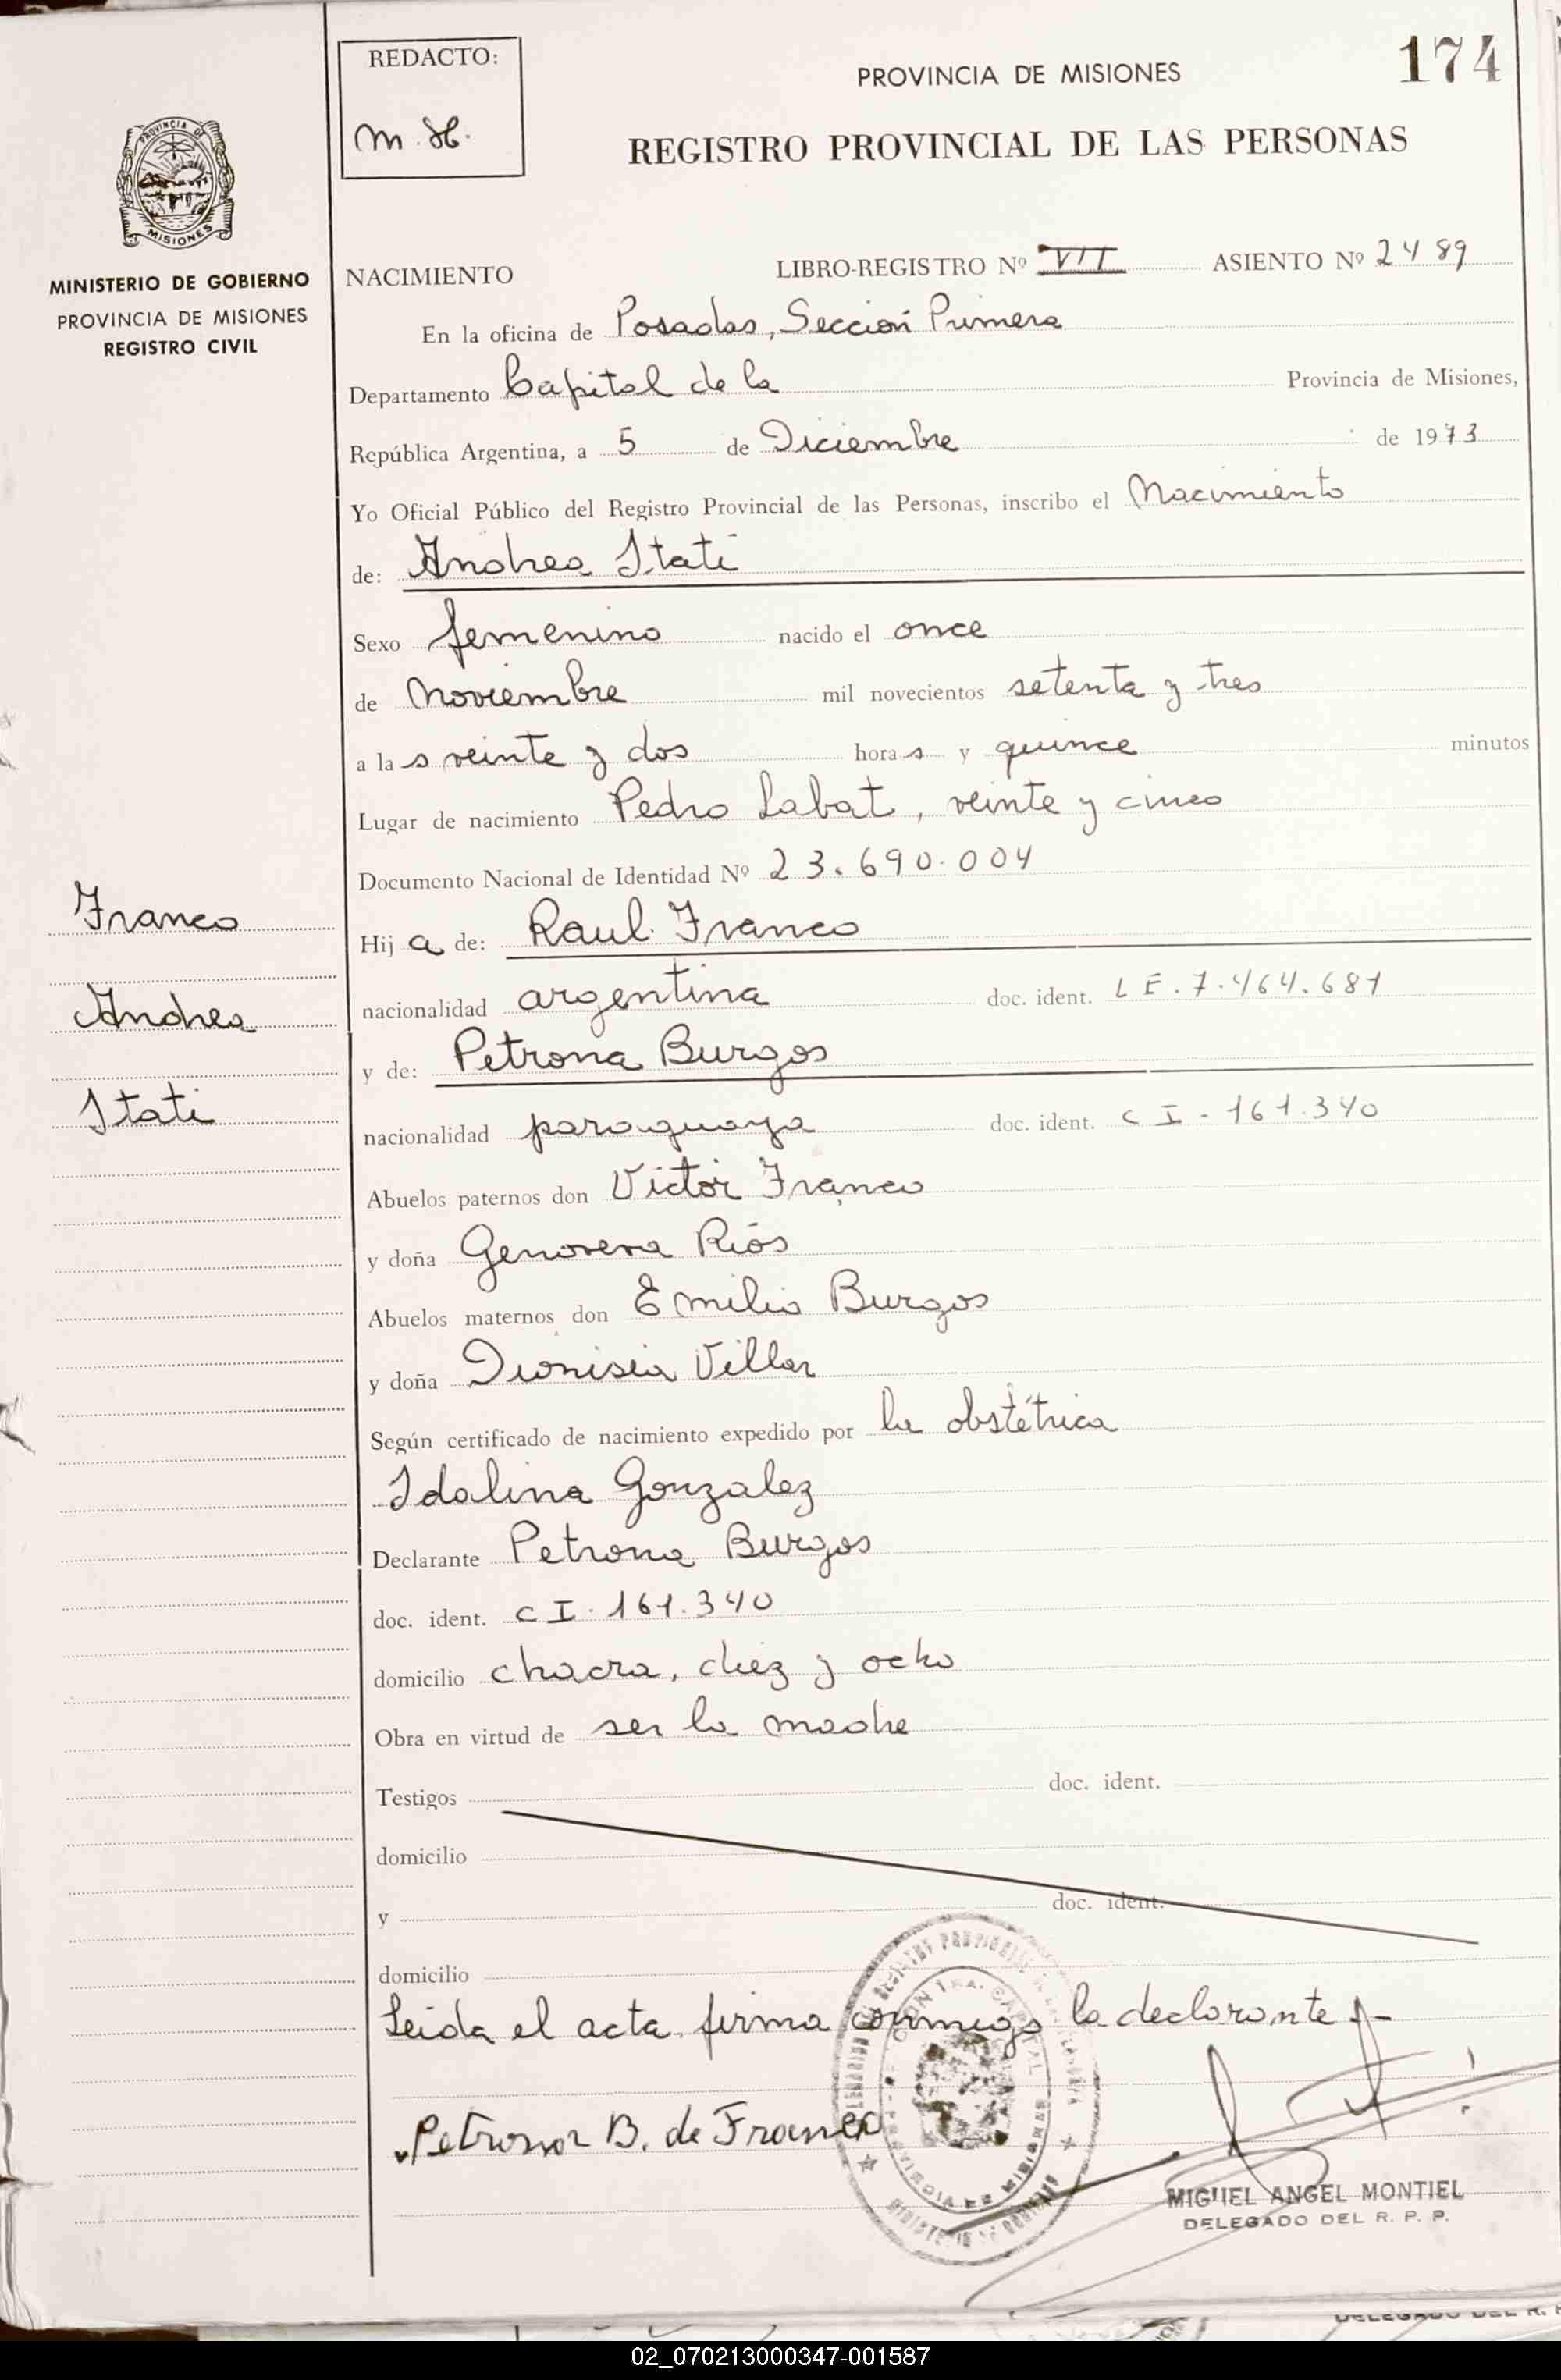 174
REDACTO:
m. H.
PROVINCIA DE MISIONES
REGISTRO PROVINCIAL DE LAS PERSONAS
PROVINCIA DE
MISIONES
MINISTERIO DE GOBIERNO
PROVINCIA DE MISIONES
REGISTRO CIVIL
NACIMIENTO LIBRO-REGISTRO Nº VII ASIENTO Nº 2489
En la oficina de Posadas, Sección Primera
Departamento Capital de la Provincia de Misiones,
República Argentina, a 5 de Diciembre de 1973
Yo Oficial Público del Registro Provincial de las Personas, inscribo el Nacimiento
de: Andrea Itati
Sexo femenino nacido el once
de Noviembre mil novecientos setenta y tres
a las veinte y dos horas y quince minutos
Lugar de nacimiento Pedro Labat, veinte y cinco
Documento Nacional de Identidad Nº 23.690.004
Franco
Hija de: Raul Franco
Andrea
nacionalidad argentina doc. ident. LE. 7.464.681
y de: Petrona Burgos
Itati
nacionalidad paraguaya doc. ident. CI - 161.340
Abuelos paternos don Victor Franco
y doña Genovera Riós
Abuelos maternos don Emilio Burgos
y doña Dionisia Villar
Según certificado de nacimiento expedido por la obstétrica
Idalina Gonzalez
Declarante Petrona Burgos
doc. ident. CI. 161.340
domicilio chacra, diez y ocho
Obra en virtud de ser la madre
Testigos doc. ident.
domicilio
y doc. ident.
domicilio
Leida el acta firma conmigo la declarante
Petrona B. de Franco
MIGUEL ANGEL MONTIEL
DELEGADO DEL R. P. P.
02_070213000347-001587